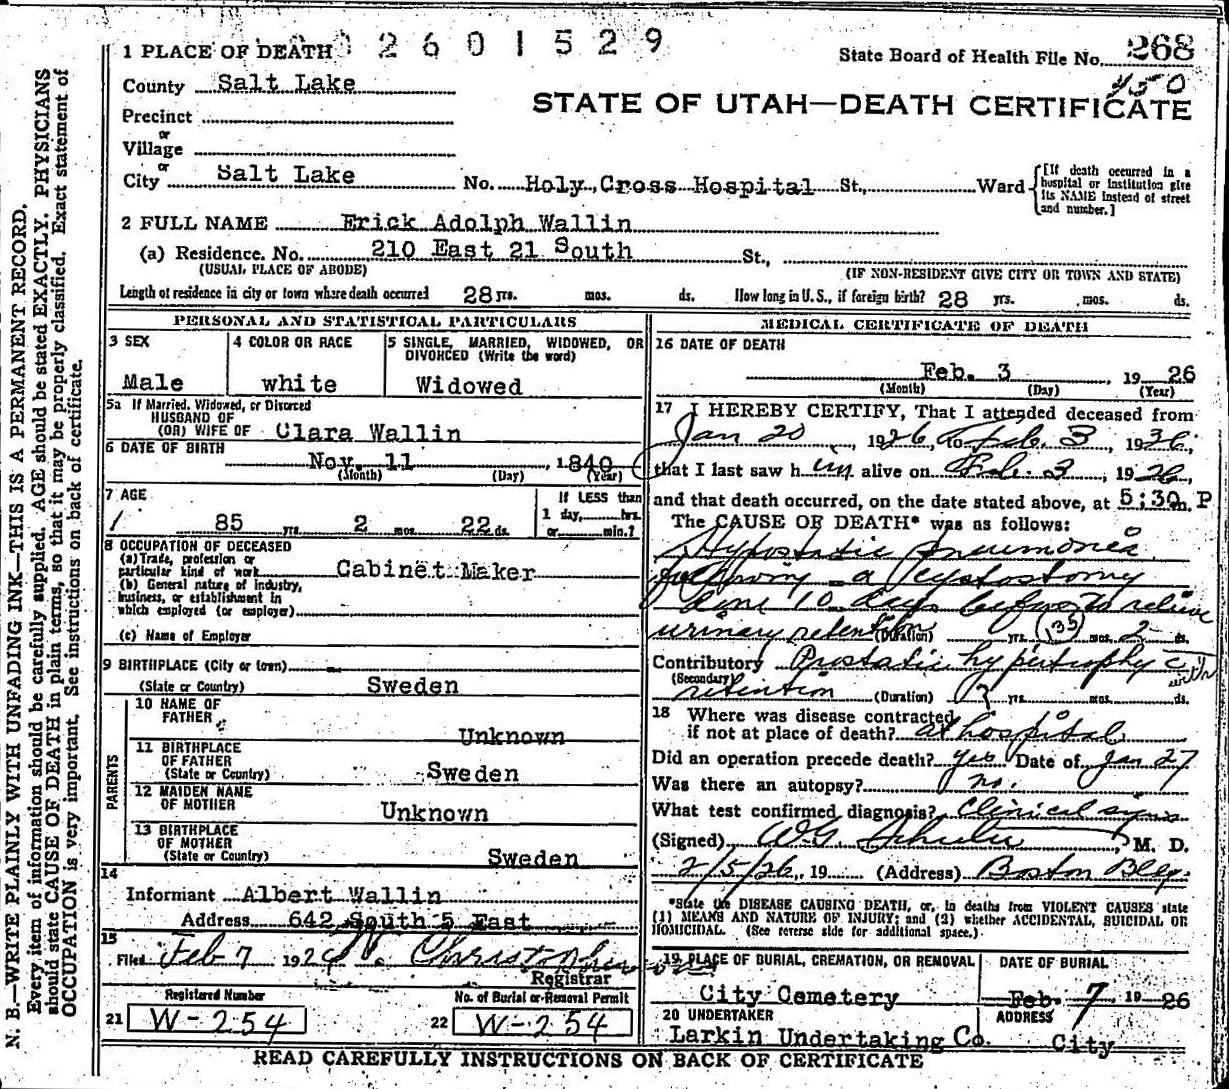 1 PLACE OF DEATH 2601529
State Board of Health File No. 268
450
County Salt Lake
STATE OF UTAH—DEATH CERTIFICATE
Precinct
or
Village
or
City Salt Lake No. Holy Cross Hospital St., Ward
[If death occurred in a
hospital or institution give
its NAME instead of street
and number.]
2 FULL NAME Erick Adolph Wallin
(a) Residence. No. 210 East 21 South St.,
(USUAL PLACE OF ABODE) (IF NON-RESIDENT GIVE CITY OR TOWN AND STATE)
Length of residence in city or town where death occurred 28 yrs. mos. ds. How long in U.S., if foreign birth? 28 yrs. mos. ds.
PERSONAL AND STATISTICAL PARTICULARS
3 SEX
Male
4 COLOR OR RACE
white
5 SINGLE, MARRIED, WIDOWED, OR
DIVORCED (Write the word)
Widowed
5a If Married, Widowed, or Divorced
HUSBAND OF
(OR) WIFE OF Clara Wallin
6 DATE OF BIRTH
Nov. 11 1840
(Month) (Day) (Year)
7 AGE
85 yrs 2 mos. 22 ds.
If LESS than
1 day, hrs.
or min.?
8 OCCUPATION OF DECEASED
(a) Trade, profession or
particular kind of work Cabinet Maker
(b) General nature of industry,
business, or establishment in
which employed (or employer)
(c) Name of Employer
9 BIRTHPLACE (City or town)
(State or Country) Sweden
PARENTS
10 NAME OF
FATHER
Unknown
11 BIRTHPLACE
OF FATHER
(State or Country) Sweden
12 MAIDEN NAME
OF MOTHER Unknown
13 BIRTHPLACE
OF MOTHER
(State or Country) Sweden
14
Informant Albert Wallin
Address 642 South 5 East
15
Filed Feb 7 192
Registrar
Registered Number
21 W-254
No. of Burial or Removal Permit
22 W-254
MEDICAL CERTIFICATE OF DEATH
16 DATE OF DEATH
Feb. 3, 19 26
(Month) (Day) (Year)
17 I HEREBY CERTIFY, That I attended deceased from
Jan 20, 1926, to Feb. 3 1936,
that I last saw him alive on Feb. 3, 1926,
and that death occurred, on the date stated above, at 5:30 m. P
The CAUSE OF DEATH* was as follows:
Hypostatic pneumonia
following a cystostomy
done 10 days before to relieve
urinary retention (Duration) yrs. (135) mos. 2 ds.
Contributory Prostatic hypertrophy c with
(Secondary)
retention (Duration) ? yrs. mos. ds.
18 Where was disease contracted
if not at place of death? at hospital
Did an operation precede death? yes Date of Jan 27
Was there an autopsy? no.
What test confirmed diagnosis? Clinical signs
(Signed) W.G. M. D.
2/5/26, 19 (Address) Boston Bldg.
*State the DISEASE CAUSING DEATH, or, in deaths from VIOLENT CAUSES state
(1) MEANS AND NATURE OF INJURY; and (2) whether ACCIDENTAL, SUICIDAL OR
HOMICIDAL. (See reverse side for additional space.)
19 PLACE OF BURIAL, CREMATION, OR REMOVAL
City Cemetery
DATE OF BURIAL
Feb. 7 19 26
20 UNDERTAKER
Larkin Undertaking Co.
ADDRESS
City
READ CAREFULLY INSTRUCTIONS ON BACK OF CERTIFICATE
N. B.—WRITE PLAINLY WITH UNFADING INK—THIS IS A PERMANENT RECORD.
Every item of information should be carefully supplied. AGE should be stated EXACTLY. PHYSICIANS
should state CAUSE OF DEATH in plain terms, so that it may be properly classified. Exact statement of
OCCUPATION is very important. See instructions on back of certificate.